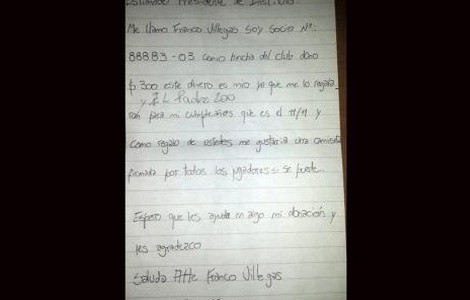 Estimado Presidente de Instituto
Me llamo Franco Villegas Soy Socio Nº:
88883-03 Como hincha del club dono
$ 300 este dinero es mio ya que me lo regala_
y EL Padre 200
ron para mi cumpleaños que es el 11/11 y
Como regalo de ustedes me gustaria otra camiseta
firmada por todos los jugadores si se puede..
Espero que les ayude en algo mi donación y
les agradezco
Saluda Atte Franco Villegas